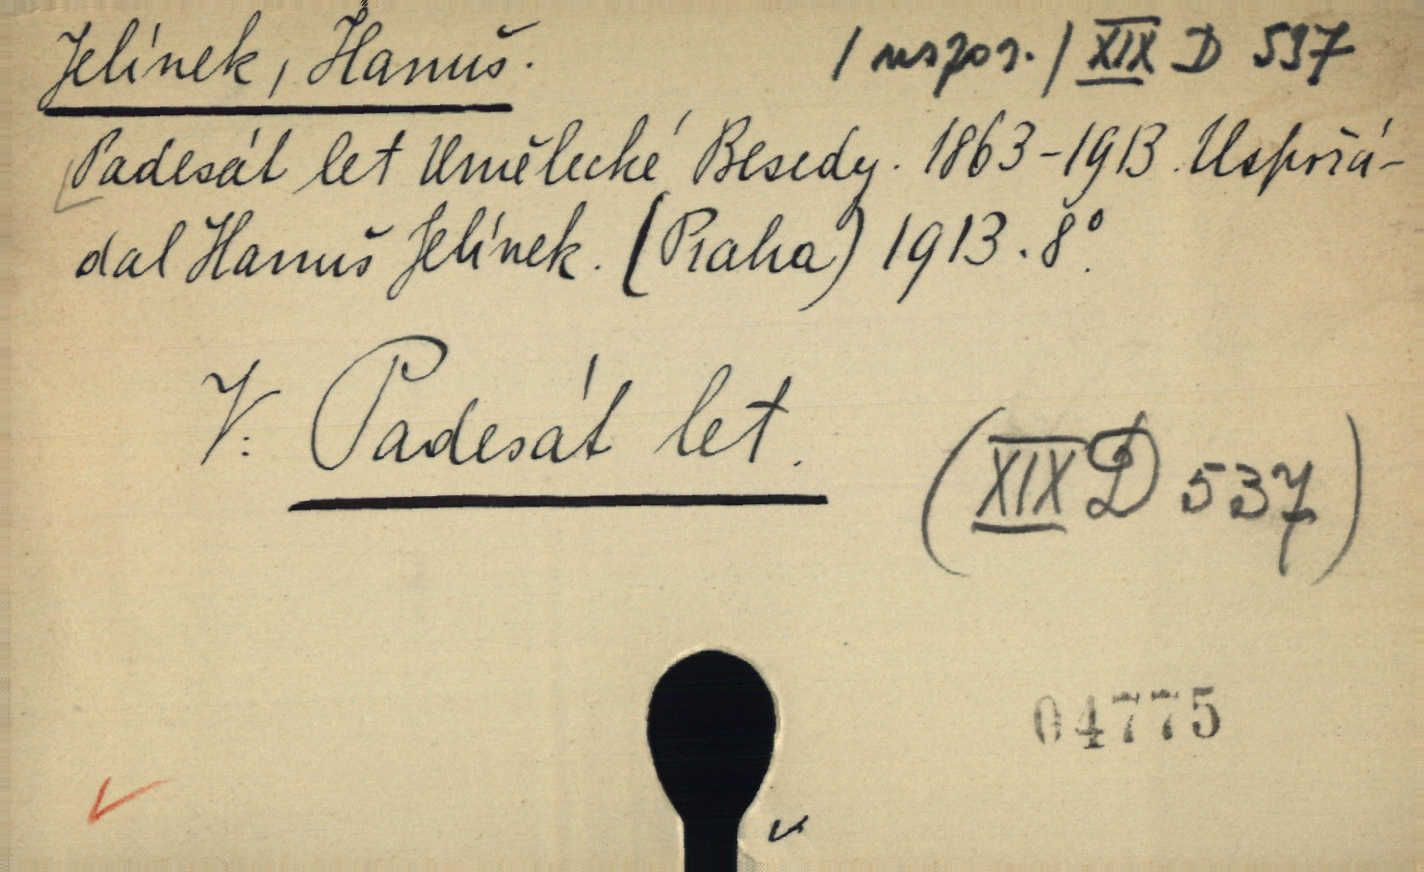 Jelínek, Hanuš. / uspoř. / XIX D 537
Padesát let Umělecké Besedy. 1863-1913. Uspořá-
dal Hanuš Jelínek. (Praha) 1913. 8°.
V: Padesát let.
(XIX D 537)
04775